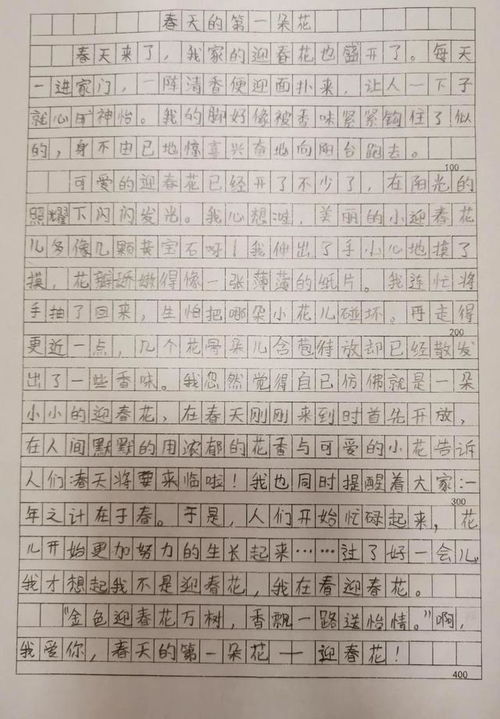 春天的第一朵花
春天来了，我家的迎春花也盛开了。每天
一进家门，一阵清香便迎面扑来，让人一下子
就心旷神怡。我的脚好像被香味紧紧钩住了似
的，身不由已地惊喜兴奋地向阳台跑去。
100
可爱的迎春花已经开了不少了，在阳光的
照耀下闪闪发光。我心想，美丽的小迎春花
儿多像几颗黄宝石呀！我伸出了手小心地摸了
摸，花瓣娇嫩得像一张薄薄的纸片。我连忙将
手抽了回来，生怕把哪朵小花儿碰坏。再走得
200
更近一点，几个花骨朵儿含苞待放却已经散发
出了一些香味。我忽然觉得自己仿佛就是一朵
小小的迎春花，在春天刚刚来到时首先开放，
在人间默默的用浓郁的花香与可爱的小花告诉
人们春天将要来临啦！我也同时提醒着大家：一
300
年之计在于春。于是，人们开始忙碌起来，花
儿开始更加努力的生长起来……过了好一会儿
我才想起我不是迎春花，我在看迎春花。
“金色迎春花万树，香飘一路送怡情。”啊，
我爱你，春天的第一朵花—迎春花！
400